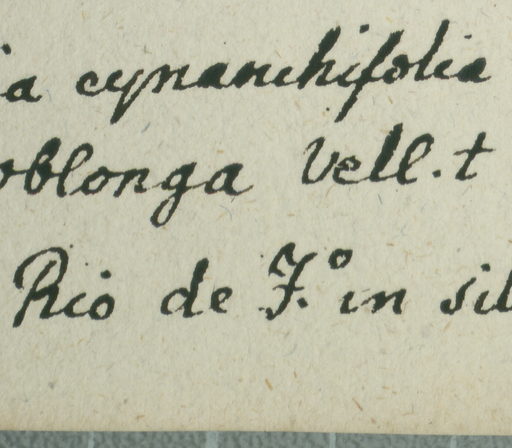 ia cynanchifolia
oblonga Vell. t
Rio de J.º in sil